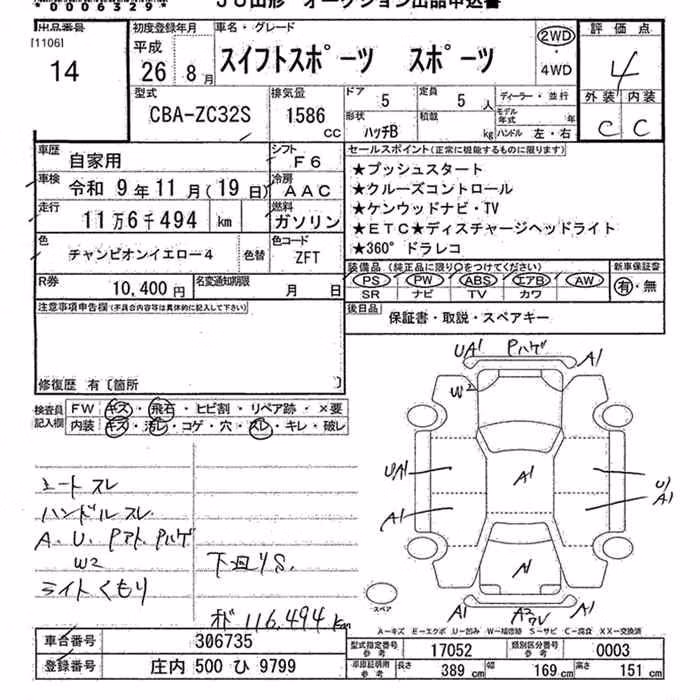 *00063297*
JU山形 オークション出品申込書
出品番号
[1106]
14
初度登録年月
平成
26 8月
車名・グレード
スイフトスポーツ スポーツ
2WD
4WD
評価点
4
外装 内装
C C
型式
CBA-ZC32S
排気量
1586
CC
ドア 5
定員 5 人
ディーラー・並行
モデル年式 年
形状
ハッチB
積載
kg
ハンドル 左・右
車歴
自家用
シフト
F6
車検
令和 9年11月(19日)
冷房
AAC
走行
11万6千494 km
燃料
ガソリン
色
チャンピオンイエロー4
色替
色コード
ZFT
R券
10,400円
名変通知期限
月 日
セールスポイント(正常に機能するものに限ります)
★プッシュスタート
★クルーズコントロール
★ケンウッドナビ・TV
★ETC★ディスチャージヘッドライト
★360°ドラレコ
装備品(純正品に限り○をつけてください)
PS PW ABS エアB AW
SR ナビ TV カワ
新車保証書
有・無
後日品
保証書・取説・スペアキー
注意事項申告欄(不具合内容等は具体的に記入して下さい)
修復歴 有〔箇所 〕
検査員記入欄
FW キズ・飛石・ヒビ割・リペア跡・×要
内装 キズ・汚レ・コゲ・穴・スレ・キレ・破レ
シートスレ
ハンドルスレ
A、U、Pアト、Pハゲ
W2
ライトくもり
下廻りS.
オド 116,494km
UA1 Pハゲ A1
W2
UA1 A1 U1 A1
A1
A1
A1 A2 A1
スペア
A-キズ E-エクボ U-凹み W-補修跡 S-サビ C-腐食 XX-交換済
車台番号
306735
登録番号
庄内 500 ひ 9799
型式指定番号 参考
17052
類別区分番号 参考
0003
車庫証明用 参考
長さ 389 cm 幅 169 cm 高さ 151 cm